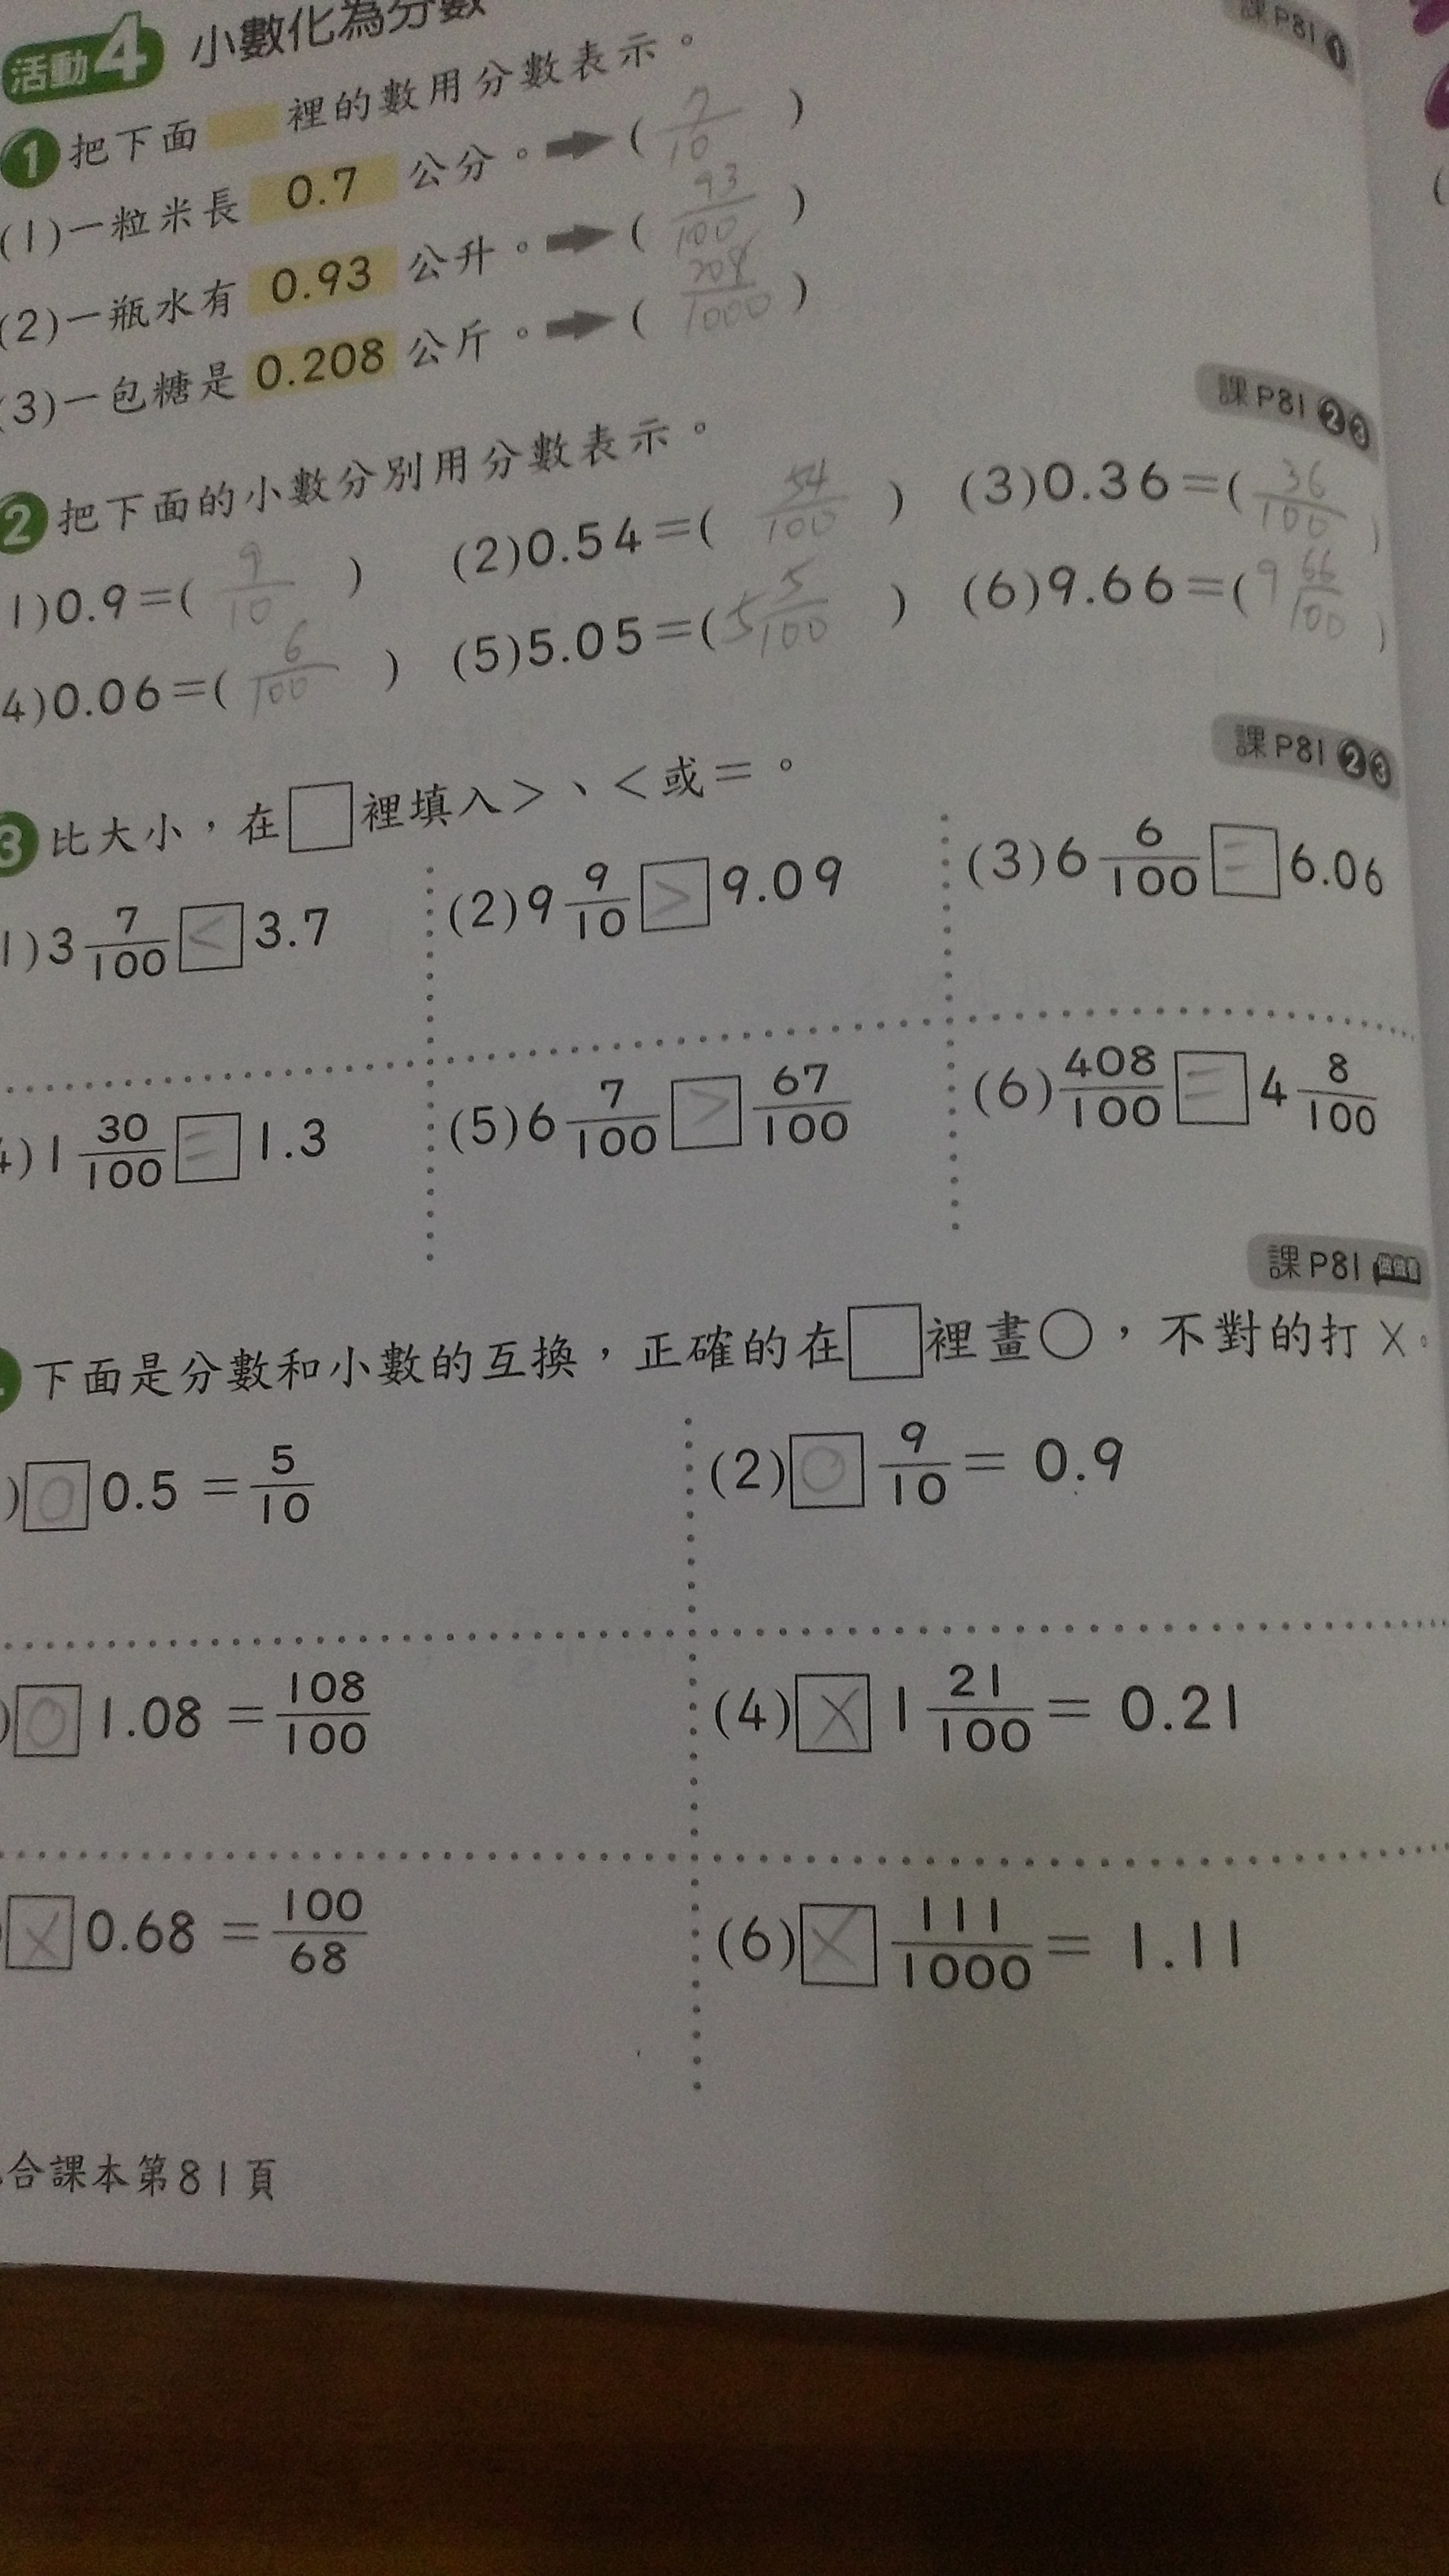 活動4 小數化為分數
課P81 1
1 把下面 裡的數用分數表示。
(1)一粒米長 0.7 公分。➡( 7/10 )
(2)一瓶水有 0.93 公升。➡( 93/100 )
(3)一包糖是 0.208 公斤。➡( 208/1000 )
課P81 2 3
2 把下面的小數分別用分數表示。
1)0.9=( 9/10 ) (2)0.54=( 54/100 ) (3)0.36=( 36/100 )
4)0.06=( 6/100 ) (5)5.05=( 5 5/100 ) (6)9.66=( 9 66/100 )
課P81 2 3
3 比大小,在□裡填入>、<或=。
1)3 7/100 < 3.7 (2)9 9/10 > 9.09 (3)6 6/100 = 6.06
4)1 30/100 = 1.3 (5)6 7/100 > 67/100 (6)408/100 = 4 8/100
課P81
下面是分數和小數的互換,正確的在□裡畫○,不對的打×。
)○ 0.5 = 5/10 (2)○ 9/10 = 0.9
)○ 1.08 = 108/100 (4)× 1 21/100 = 0.21
× 0.68 = 100/68 (6)× 111/1000 = 1.11
合課本第81頁